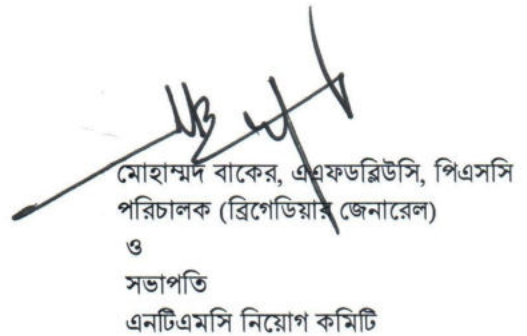 মোহাম্মদ বাকের, এএফডব্লিউসি, পিএসসি
পরিচালক (ব্রিগেডিয়ার জেনারেল)
ও
সভাপতি
এনটিএমসি নিয়োগ কমিটি